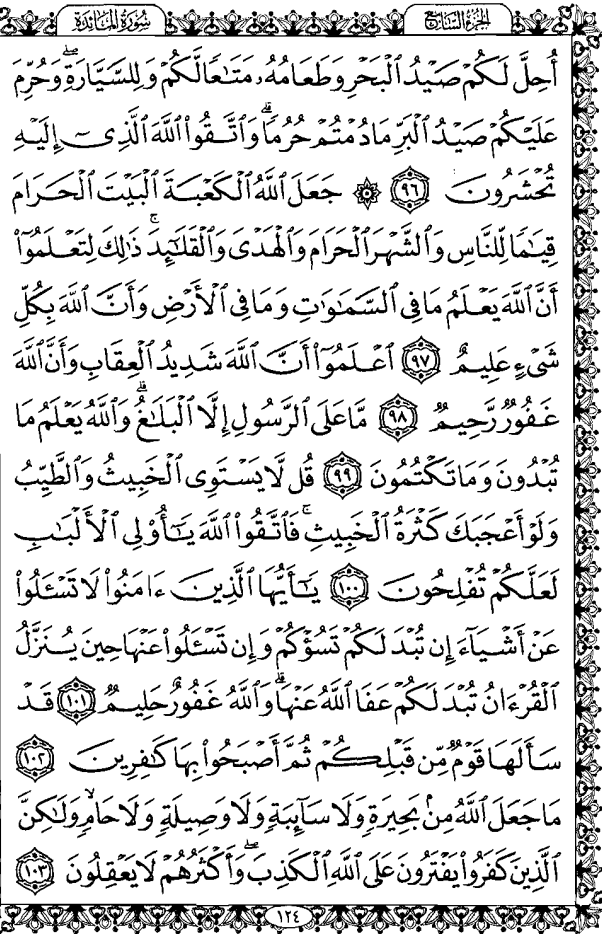 الجزء السابع سورة المائدة
أُحِلَّ لَكُمْ صَيْدُ ٱلْبَحْرِ وَطَعَامُهُۥ مَتَٰعًا لَّكُمْ وَلِلسَّيَّارَةِۖ وَحُرِّمَ
عَلَيْكُمْ صَيْدُ ٱلْبَرِّ مَا دُمْتُمْ حُرُمًاۗ وَٱتَّقُوا۟ ٱللَّهَ ٱلَّذِىٓ إِلَيْهِ
تُحْشَرُونَ ۝٩٦ ۞ جَعَلَ ٱللَّهُ ٱلْكَعْبَةَ ٱلْبَيْتَ ٱلْحَرَامَ
قِيَٰمًا لِّلنَّاسِ وَٱلشَّهْرَ ٱلْحَرَامَ وَٱلْهَدْىَ وَٱلْقَلَٰٓئِدَۚ ذَٰلِكَ لِتَعْلَمُوٓا۟
أَنَّ ٱللَّهَ يَعْلَمُ مَا فِى ٱلسَّمَٰوَٰتِ وَمَا فِى ٱلْأَرْضِ وَأَنَّ ٱللَّهَ بِكُلِّ
شَىْءٍ عَلِيمٌ ۝٩٧ ٱعْلَمُوٓا۟ أَنَّ ٱللَّهَ شَدِيدُ ٱلْعِقَابِ وَأَنَّ ٱللَّهَ
غَفُورٌ رَّحِيمٌ ۝٩٨ مَّا عَلَى ٱلرَّسُولِ إِلَّا ٱلْبَلَٰغُۗ وَٱللَّهُ يَعْلَمُ مَا
تُبْدُونَ وَمَا تَكْتُمُونَ ۝٩٩ قُل لَّا يَسْتَوِى ٱلْخَبِيثُ وَٱلطَّيِّبُ
وَلَوْ أَعْجَبَكَ كَثْرَةُ ٱلْخَبِيثِۚ فَٱتَّقُوا۟ ٱللَّهَ يَٰٓأُو۟لِى ٱلْأَلْبَٰبِ
لَعَلَّكُمْ تُفْلِحُونَ ۝١٠٠ يَٰٓأَيُّهَا ٱلَّذِينَ ءَامَنُوا۟ لَا تَسْـَٔلُوا۟
عَنْ أَشْيَآءَ إِن تُبْدَ لَكُمْ تَسُؤْكُمْ وَإِن تَسْـَٔلُوا۟ عَنْهَا حِينَ يُنَزَّلُ
ٱلْقُرْءَانُ تُبْدَ لَكُمْ عَفَا ٱللَّهُ عَنْهَاۗ وَٱللَّهُ غَفُورٌ حَلِيمٌ ۝١٠١ قَدْ
سَأَلَهَا قَوْمٌ مِّن قَبْلِكُمْ ثُمَّ أَصْبَحُوا۟ بِهَا كَٰفِرِينَ ۝١٠٢
مَا جَعَلَ ٱللَّهُ مِنۢ بَحِيرَةٍ وَلَا سَآئِبَةٍ وَلَا وَصِيلَةٍ وَلَا حَامٍۙ وَلَٰكِنَّ
ٱلَّذِينَ كَفَرُوا۟ يَفْتَرُونَ عَلَى ٱللَّهِ ٱلْكَذِبَۖ وَأَكْثَرُهُمْ لَا يَعْقِلُونَ ۝١٠٣
١٢٤